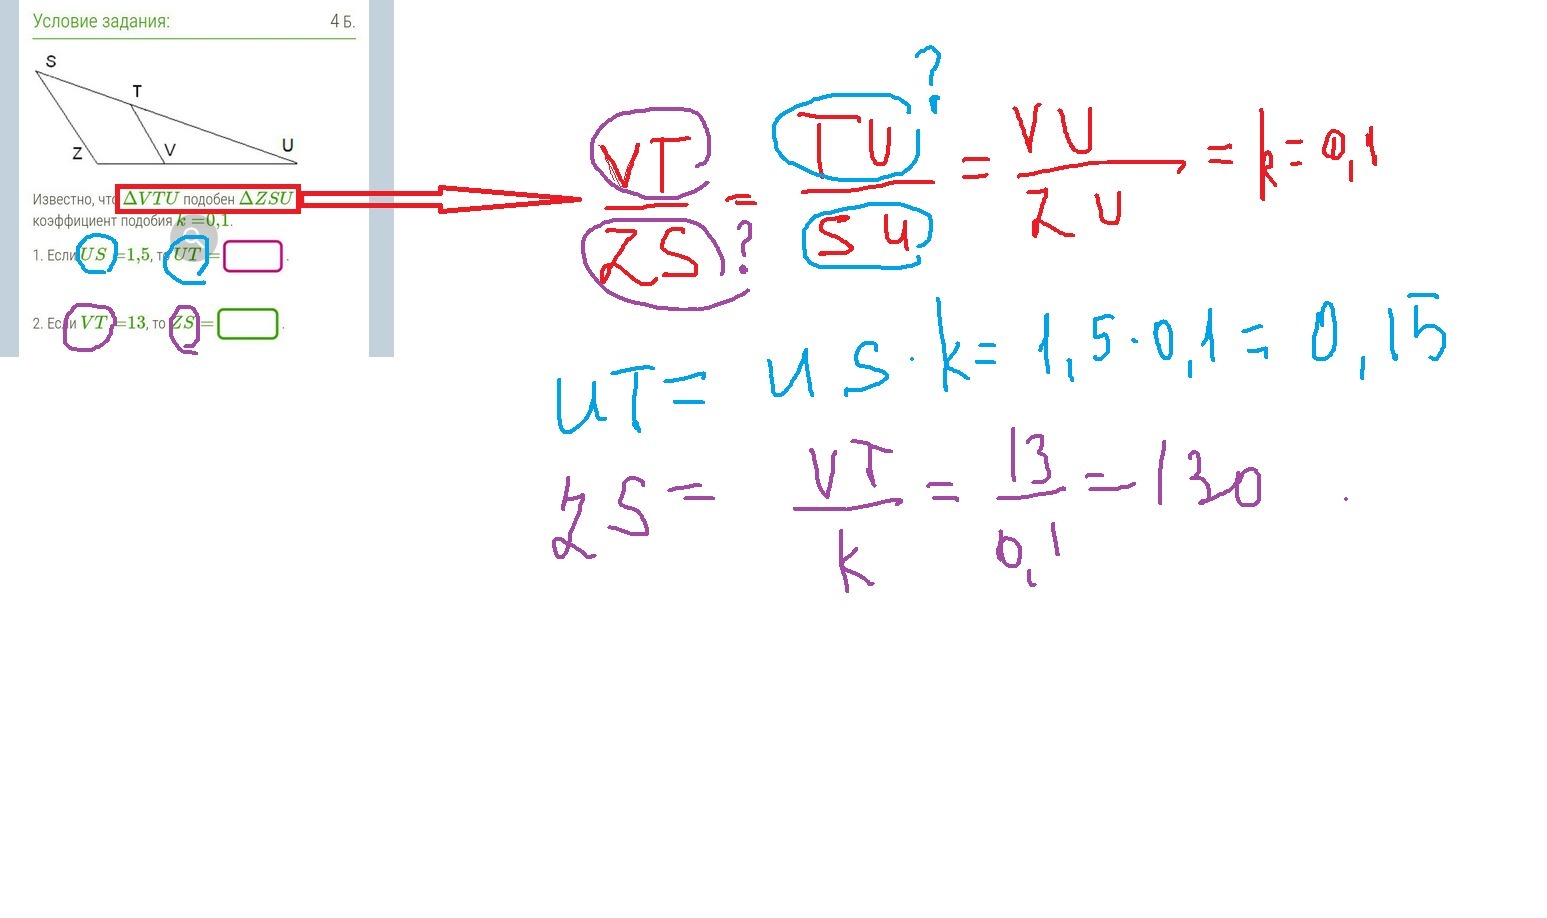 Условие задания: 4 Б.
S
T
U
Z
V
Известно, что ΔVTU подобен ΔZSU
коэффициент подобия k =0,1.
1. Если US =1,5, то UT = .
2. Если VT =13, то ZS = .
VT/ZS = TU/SU = VU/ZU = k = 0,1
?
?
UT = US · k = 1,5 · 0,1 = 0,15
ZS = VT/k = 13/0,1 = 130